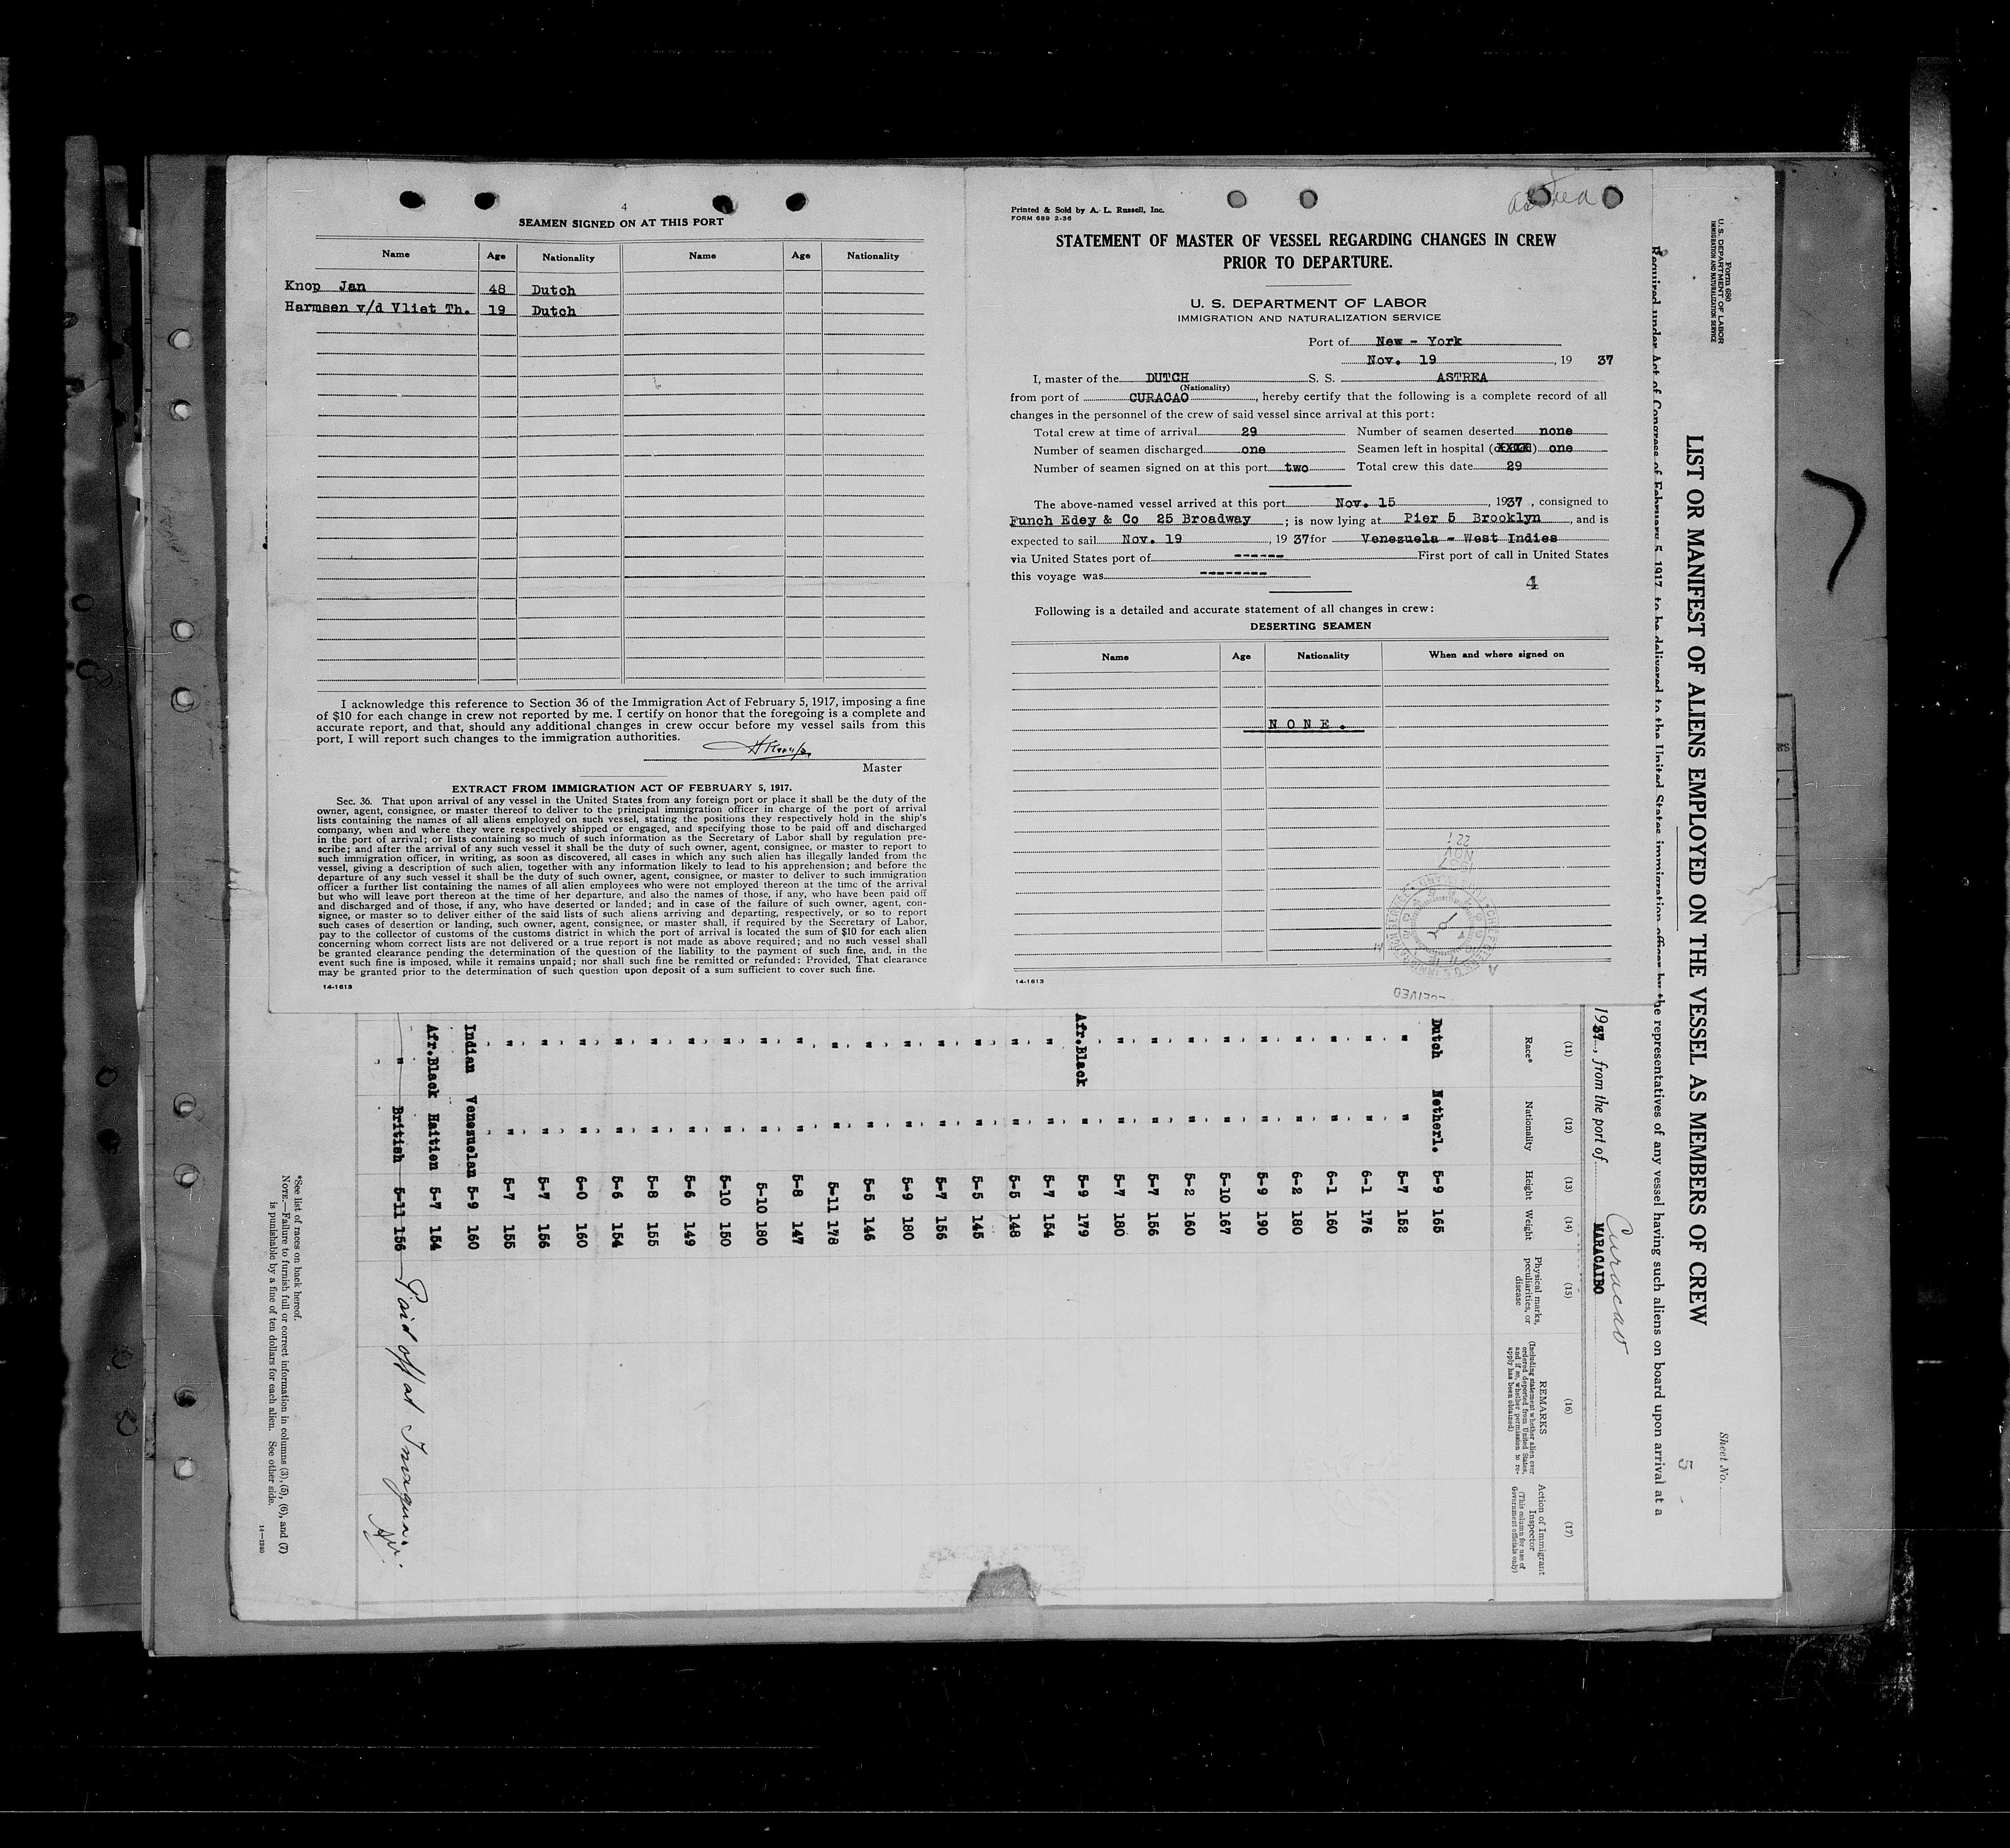 4
SEAMEN SIGNED ON AT THIS PORT
Name Age Nationality Name Age Nationality
Knop Jan 48 Dutch
Harmsen v/d Vliet Th. 19 Dutch
I acknowledge this reference to Section 36 of the Immigration Act of February 5, 1917, imposing a fine
of $10 for each change in crew not reported by me. I certify on honor that the foregoing is a complete and
accurate report, and that, should any additional changes in crew occur before my vessel sails from this
port, I will report such changes to the immigration authorities.
Master
EXTRACT FROM IMMIGRATION ACT OF FEBRUARY 5, 1917.
Sec. 36. That upon arrival of any vessel in the United States from any foreign port or place it shall be the duty of the
owner, agent, consignee, or master thereof to deliver to the principal immigration officer in charge of the port of arrival
lists containing the names of all aliens employed on such vessel, stating the positions they respectively hold in the ship's
company, when and where they were respectively shipped or engaged, and specifying those to be paid off and discharged
in the port of arrival; or lists containing so much of such information as the Secretary of Labor shall by regulation pre-
scribe; and after the arrival of any such vessel it shall be the duty of such owner, agent, consignee, or master to report to
such immigration officer, in writing, as soon as discovered, all cases in which any such alien has illegally landed from the
vessel, giving a description of such alien, together with any information likely to lead to his apprehension; and before the
departure of any such vessel it shall be the duty of such owner, agent, consignee, or master to deliver to such immigration
officer a further list containing the names of all alien employees who were not employed thereon at the time of the arrival
but who will leave port thereon at the time of her departure, and also the names of those, if any, who have been paid off
and discharged and of those, if any, who have deserted or landed; and in case of the failure of such owner, agent, con-
signee, or master so to deliver either of the said lists of such aliens arriving and departing, respectively, or so to report
such cases of desertion or landing, such owner, agent, consignee, or master shall, if required by the Secretary of Labor,
pay to the collector of customs of the customs district in which the port of arrival is located the sum of $10 for each alien
concerning whom correct lists are not delivered or a true report is not made as above required; and no such vessel shall
be granted clearance pending the determination of the question of the liability to the payment of such fine, and, in the
event such fine is imposed, while it remains unpaid; nor shall such fine be remitted or refunded: Provided, That clearance
may be granted prior to the determination of such question upon deposit of a sum sufficient to cover such fine.
14-1613
Astrea
Printed & Sold by A. L. Russell, Inc.
FORM 689 2-36
STATEMENT OF MASTER OF VESSEL REGARDING CHANGES IN CREW
PRIOR TO DEPARTURE.
U. S. DEPARTMENT OF LABOR
IMMIGRATION AND NATURALIZATION SERVICE
Port of New - York
Nov. 19, 19 37
I, master of the DUTCH S. S. ASTREA
(Nationality)
from port of CURACAO, hereby certify that the following is a complete record of all
changes in the personnel of the crew of said vessel since arrival at this port:
Total crew at time of arrival 29 Number of seamen deserted none
Number of seamen discharged one Seamen left in hospital ( ) one
Number of seamen signed on at this port two Total crew this date 29
The above-named vessel arrived at this port Nov. 15, 1937, consigned to
Funch Edey & Co 25 Broadway; is now lying at Pier 5 Brooklyn, and is
expected to sail Nov. 19, 19 37 for Venezuela - West Indies
via United States port of ------ First port of call in United States
this voyage was --------
4
Following is a detailed and accurate statement of all changes in crew:
DESERTING SEAMEN
Name Age Nationality When and where signed on
NONE.
14-1613
Form 680
U. S. DEPARTMENT OF LABOR
IMMIGRATION AND NATURALIZATION SERVICE
Sheet No.
5
LIST OR MANIFEST OF ALIENS EMPLOYED ON THE VESSEL AS MEMBERS OF CREW
Required under Act of Congress of February 5, 1917, to be delivered to the United States immigration officer by the representatives of any vessel having such aliens on board upon arrival at a
Curacao
1937, from the port of MARACAIBO
(11) (12) (13) (14) (15) (16) (17)
Race* Nationality Height Weight Physical marks, peculiarities, or disease REMARKS (Including statement whether alien ever ordered deported from United States, and if so, whether permission to re-apply has been obtained) Action of Immigrant Inspector (This column for use of Government officials only)
Dutch Netherl. 5-9 165
" " 5-7 152
" " 6-1 176
" " 6-1 160
" " 6-2 180
" " 5-9 190
" " 5-10 167
" " 5-2 160
" " 5-7 156
" " 5-7 180
Afr.Black " 5-9 179
" " 5-7 154
" " 5-5 148
" " 5-5 145
" " 5-7 156
" " 5-9 180
" " 5-5 146
" " 5-11 178
" " 5-8 147
" " 5-10 180
" " 5-10 150
" " 5-6 149
" " 5-8 155
" " 5-6 154
" " 6-0 160
" " 5-7 156
" " 5-7 155
Indian Venezuelan 5-9 160
Afr.Black Haitien 5-7 154
" British 5-11 156 Paid off at Inagua
*See list of races on back hereof.
NOTE.—Failure to furnish full or correct information in columns (3), (5), (6), and (7)
is punishable by a fine of ten dollars for each alien. See other side.
14-1240